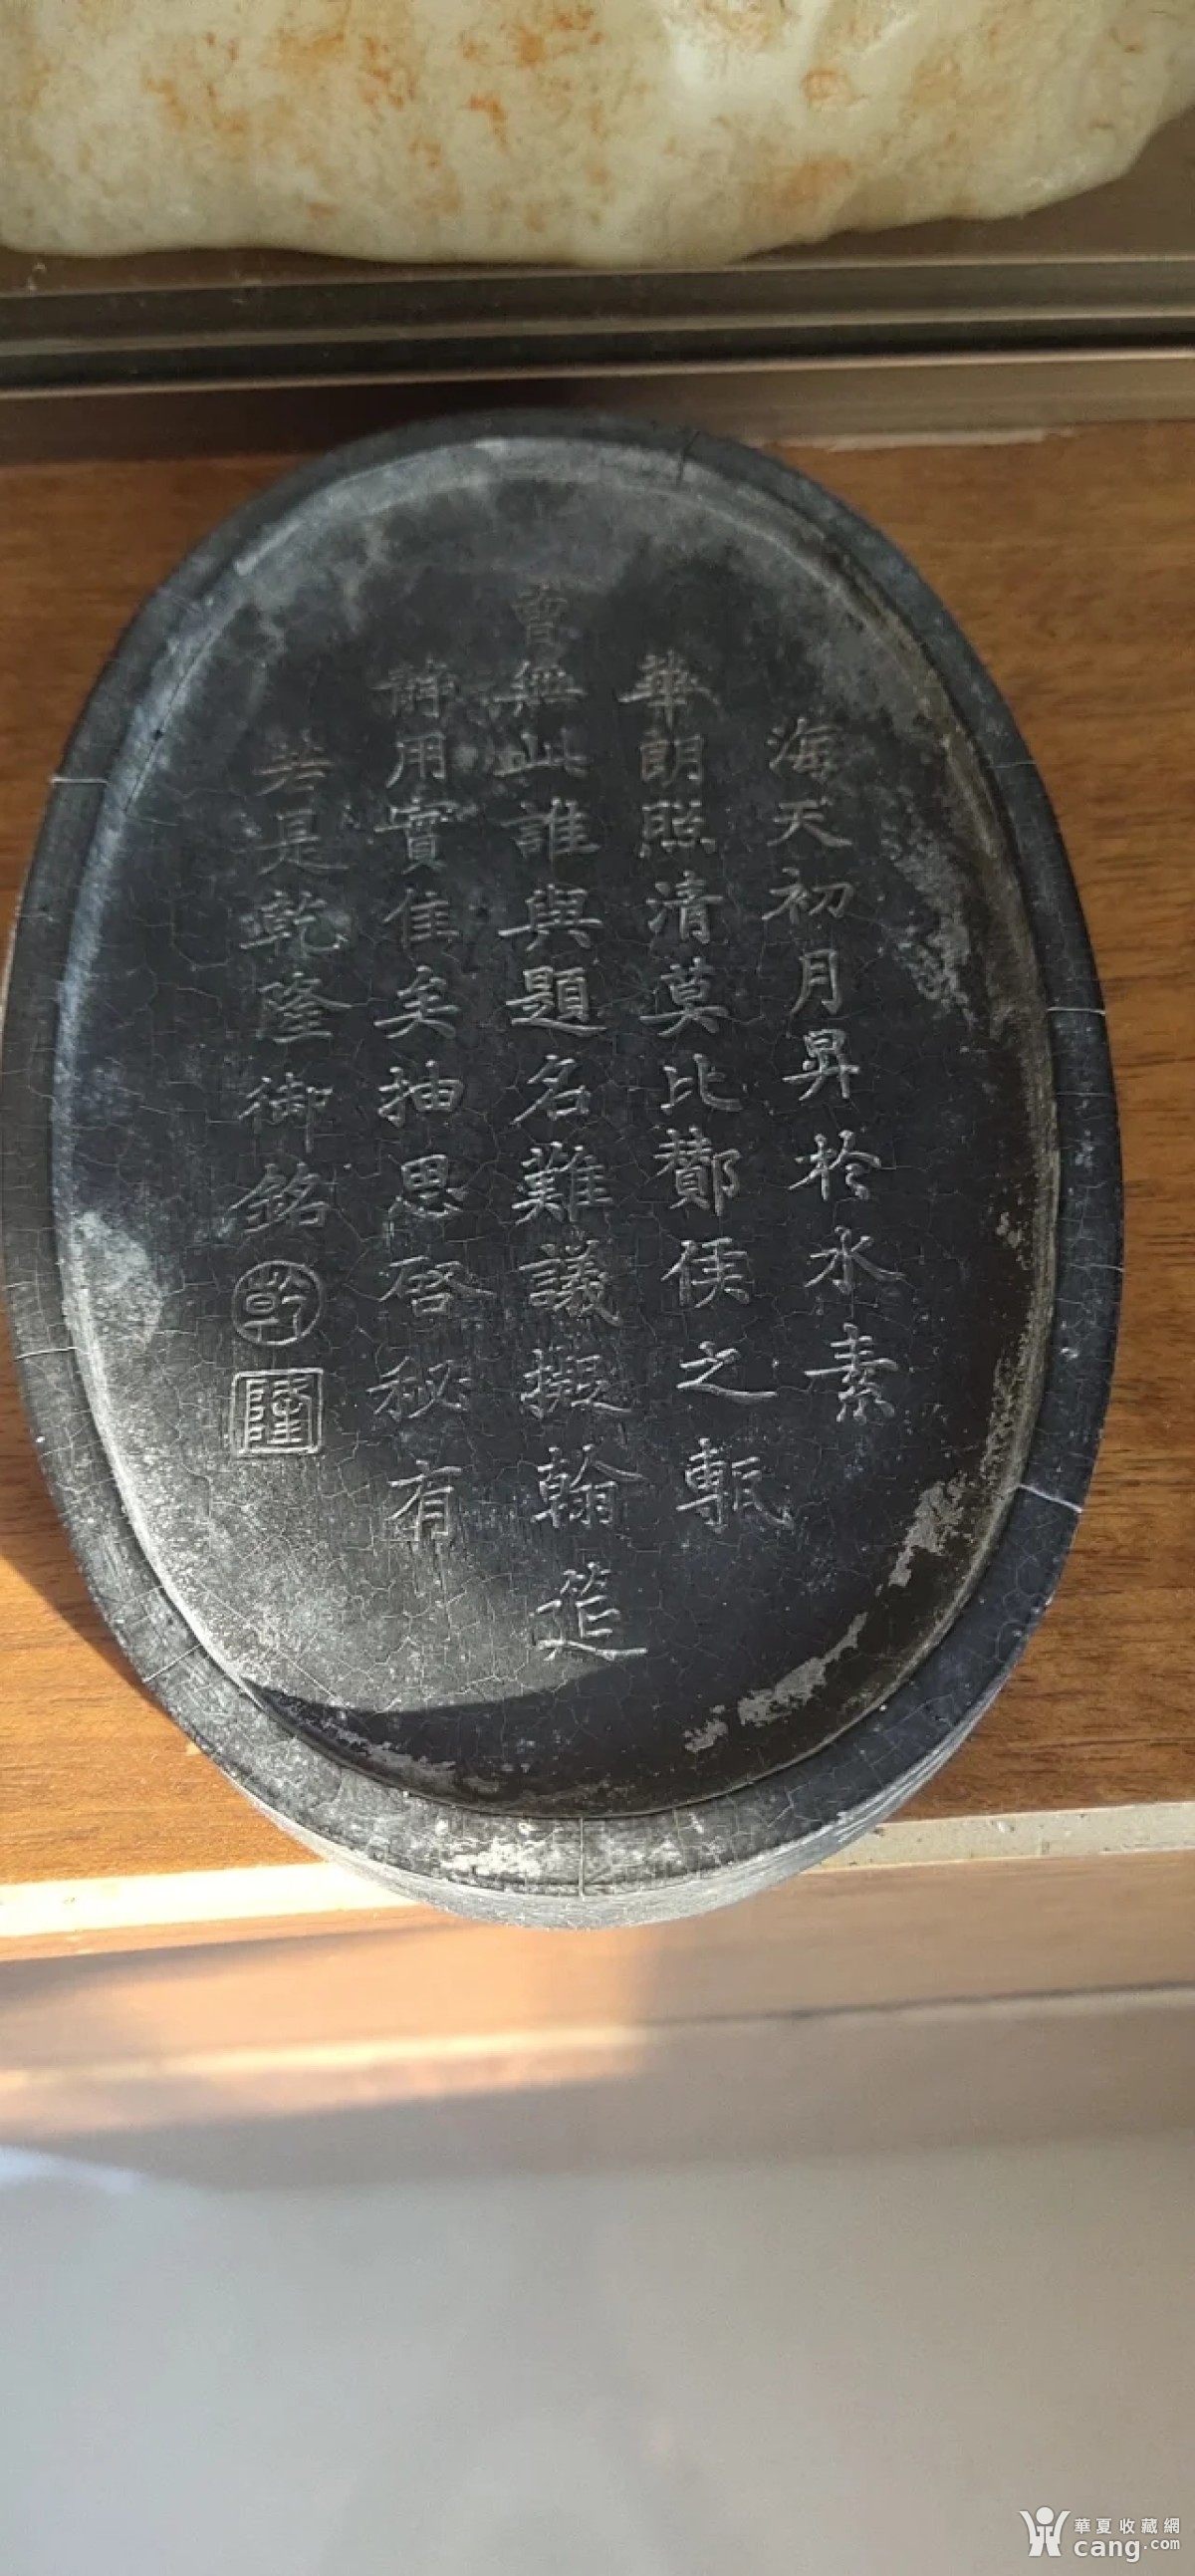 海天初月昇於水素
華朗照清莫比鄼侯之甎
曾無此誰與題名難議擬翰筵
靜用實佳矣抽思啓秘有
若是乾隆御銘
乾
隆
華夏收藏網
cang.com